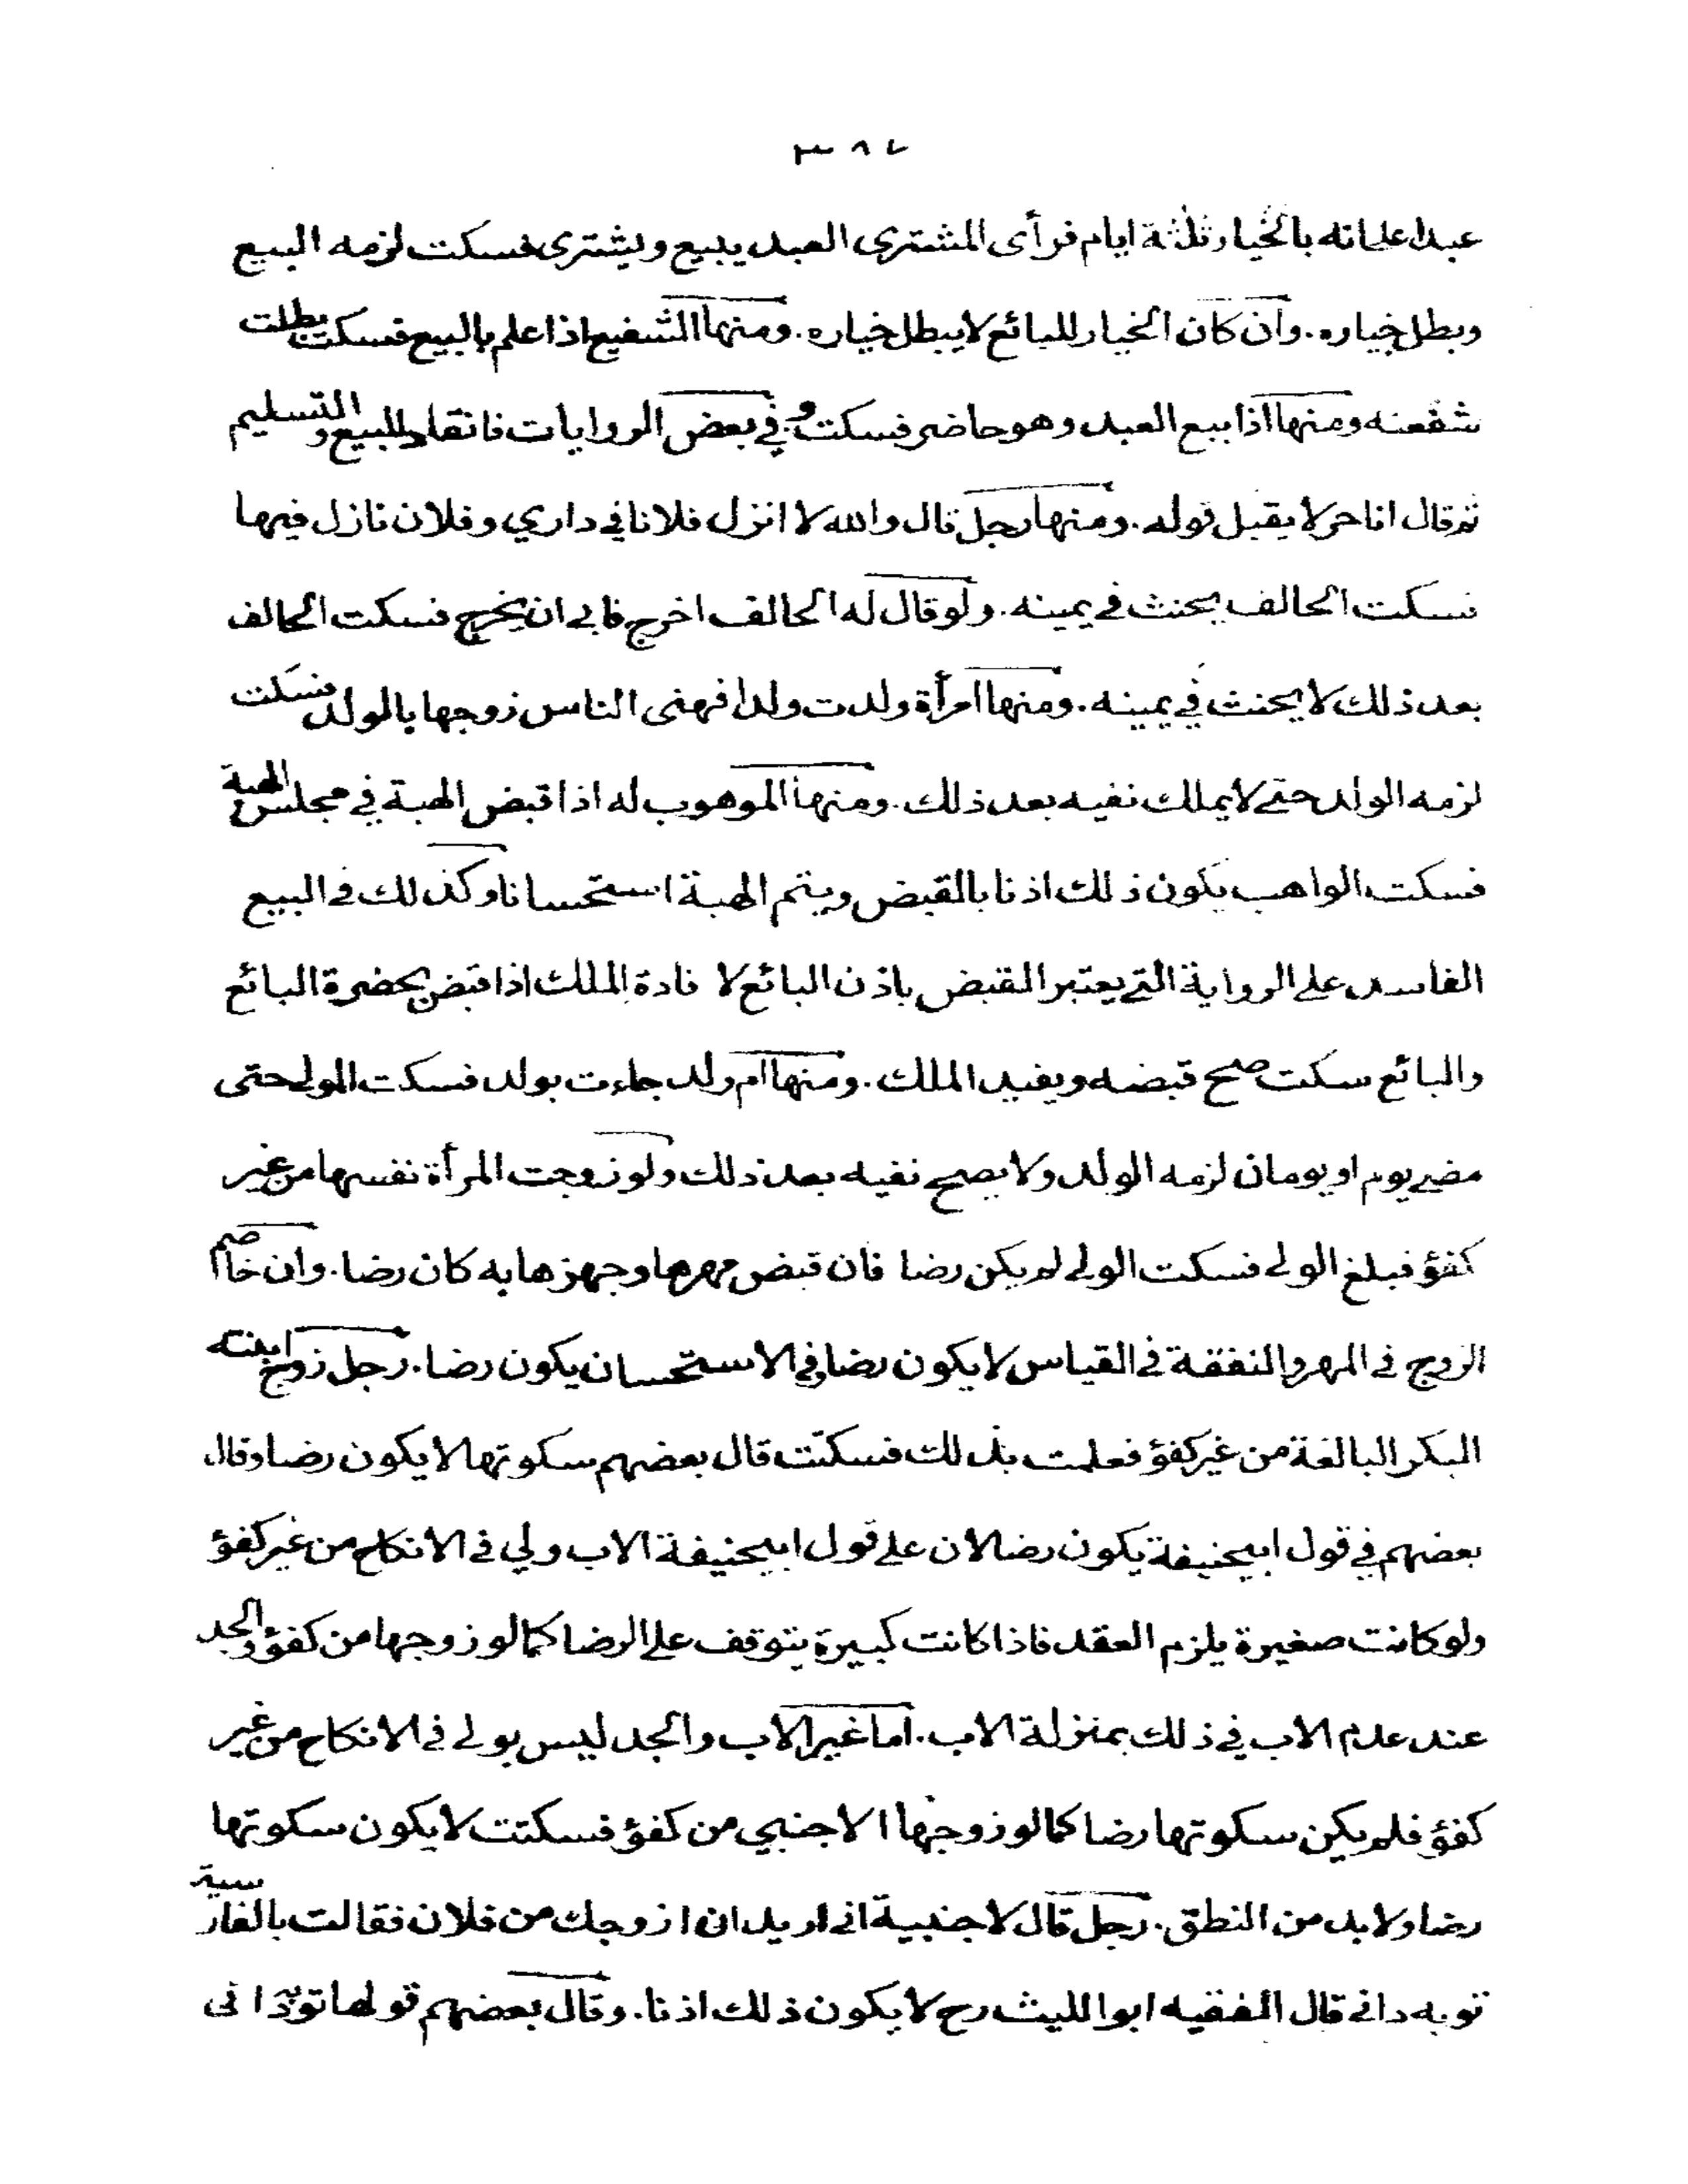 ٣٨٧
عبدا على انه بالخيار ثلثة ايام فرأى المشترى العبد يبيع ويشترى فسكت لزمه البيع
وبطل خياره. وان كان الخيار للبائع لا يبطل خياره. ومنها الشفيع اذا علم بالبيع فسكت بطلت
شفعته ومنها اذا بيع العبد وهو حاضر فسكت وفي بعض الروايات فانقاد للبيع والتسليم
ثم قال انا حر لا يقبل قوله. ومنها رجل قال والله لا انزل فلانا في داري وفلان نازل فيها
فسكت الحالف يحنث في يمينه. ولو قال له الحالف اخرج فابى ان يخرج فسكت الحالف
بعد ذلك لا يحنث في يمينه. ومنها امرأة ولدت ولدا فهنى الناس زوجها بالولد فسكت
لزمه الولد حتى لا يملك نفيه بعد ذلك. ومنها الموهوب له اذا قبض الهبة في مجلس الهبة
فسكت الواهب يكون ذلك اذنا بالقبض ويتم الهبة استحسانا وكذلك في البيع
الفاسد على الرواية التي يعتبر القبض باذن البائع لافادة الملك اذا قبض بحضرة البائع
والبائع سكت صح قبضه ويفيد الملك. ومنها ام ولد جاءت بولد فسكت المولى حتى
مضى يوم او يومان لزمه الولد ولا يصح نفيه بعد ذلك ولو زوجت المرأة نفسها من غير
كفؤ فبلغ الولي فسكت الولي لم يكن رضا فان قبض مهرها وجهزها به كان رضا. وان خاصم
الزوج في المهر والنفقة في القياس لا يكون رضا وفي الاستحسان يكون رضا. رجل زوج ابنته
البكر البالغة من غير كفؤ فعلمت بذلك فسكتت قال بعضهم سكوتها لا يكون رضا وقال
بعضهم في قول ابيحنيفة يكون رضا لان على قول ابيحنيفة الاب ولي في الانكاح من غير كفؤ
ولو كانت صغيرة يلزم العقد فاذا كانت كبيرة يتوقف على الرضا كما لو زوجها من كفؤ والجد
عند عدم الاب في ذلك بمنزلة الاب. اما غير الاب والجد ليس بولي في الانكاح من غير
كفؤ فلم يكن سكوتها رضا كما لو زوجها الاجنبي من كفؤ فسكتت لا يكون سكوتها
رضا ولا بد من النطق. رجل قال لاجنبية اني اريد ان ازوجك من فلان فقالت بالفارسية
توبه داني قال الفقيه ابو الليث رح لا يكون ذلك اذنا. وقال بعضهم قولها توبه داني